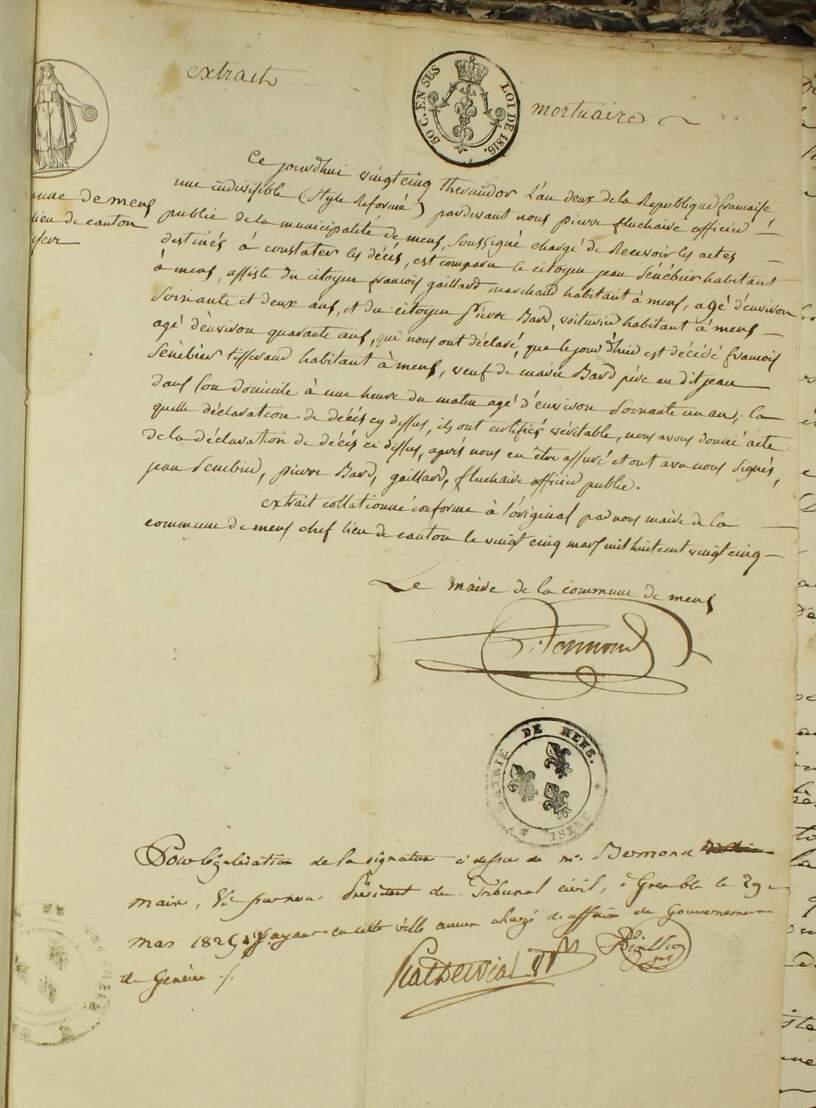 extrait
mortuaire
50 C. EN SUS
LOI DE 1816.
de mens
lieu de canton
Ce jourdhui vingt cinq thermidor L'an deux de la Republique francaise
une indivisible (Style Reformé) pardevant nous pierre fluchaire officier
publie de la municipalité de mens, soussigné chargé de Recevoir les actes
destinés à constater les décés, est comparu le citoyen jean Senebier habitant
à mens, assisté du citoyen francois gaillard marchand habitant à mens, agé d'environ
soixante et deux ans, et du citoyen Pierre Bard, voiturier habitant à mens
agé d'environ quarante ans, qui nous ont déclaré, que le jourd'huy est décédé francois
Senebier tisserand habitant à mens, veuf de marie Bard père au dit jean
dans son domicile à une heure du matin agé d'environ soixante un an, la
quelle déclaration de décés cy dessus, ils ont certifiés véritable, nous avons donné acte
de la déclaration de décés ci dessus, après nous en être assuré et ont avec nous signés,
jean Senebier, pierre Bard, gaillard, fluchaire officier public.
extrait collationné conforme à l'original par nous maire de la
commune de mens chef lieu de canton le vingt cinq mars mil huit cent vingt cinq
Le maire de la commune de mens
MAIRIE DE MENS.
ISERE
Pour légalisation de la signature ci dessus de mr. Bermond
maire, Par nous Président du Tribunal civil, à Grenoble le 29
mars 1825, n'y ayant en cette ville aucun chargé d'affaire du Gouvernement
de Genève ./.